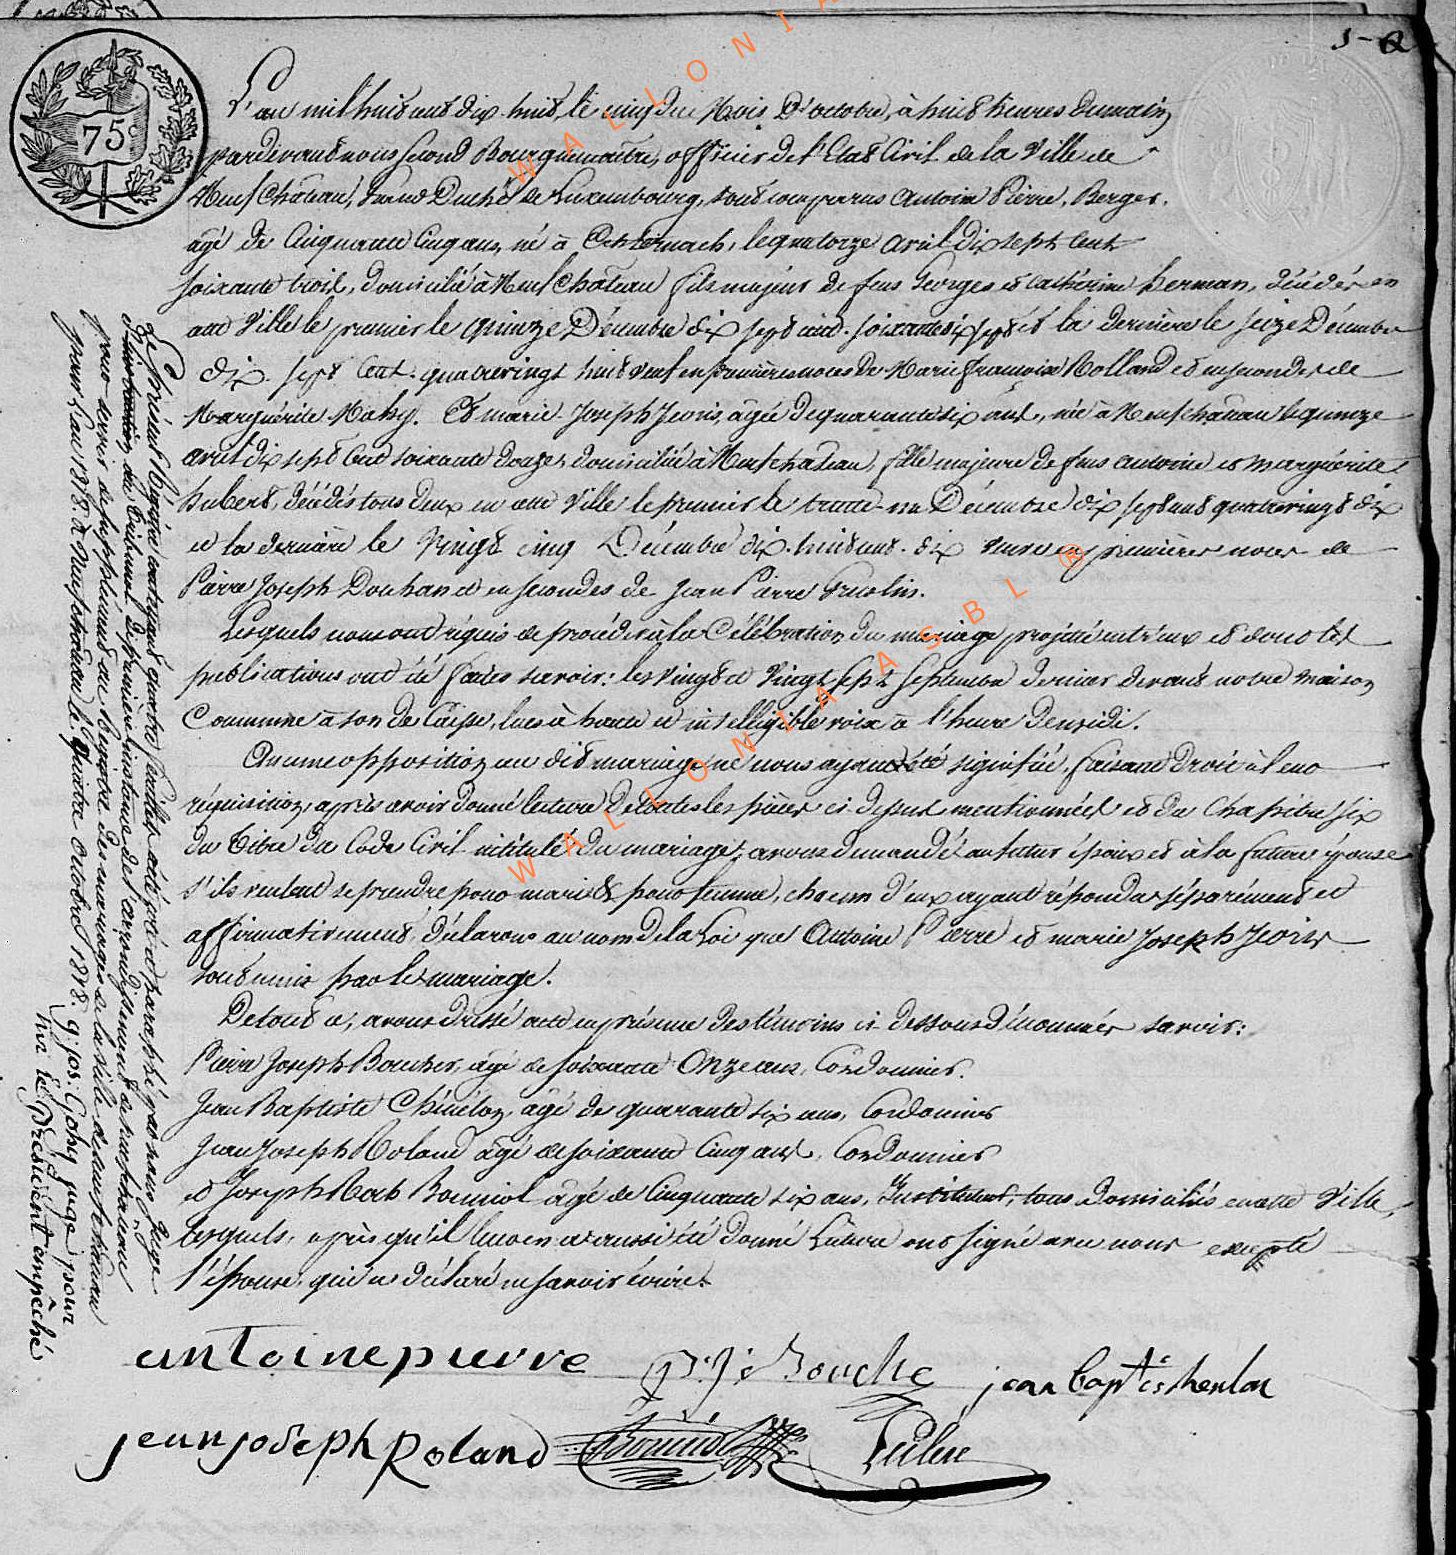 5-
75 c
L'an mil huit cent dix huit, le cinq du Mois D'octobre, à huit heures du matin
pardevant nous second Bourguemaitre, officier de l'Etat Civil de la Ville de
Neufchâteau, Grand Duché de Luxembourg, sont comparus Antoine Pierre, Berger,
âgé de Cinquante Cinq ans, né à Echternach, le quatorze avril dix sept Cent
soixante trois, domicilié à Neufchâteau fils majeur de feus Georges et Cathérine herman, décédés en
cette Ville le premier le quinze Décembre dix sept cent soixante dix sept et la dernière le seize Décembre
dix sept Cent quatrevingt huit veuf en premières noces de Marie françoise Rolland et en secondes de
Marguérite Mahy. Et marie Joseph Jeoris, âgée de quarante six ans, née à Neufchâteau le quinze
avril dix sept Cent soixante douze, domiciliée à Neufchateau, fille majeure de feus antoine et marguérite
hubert, décédés tous deux en cette Ville le premier le trente un Décembre dix sept cent quatrevingt dix
et la dernière le Vingt cinq Décembre dix huit cent dix Veuve en premières noces de
Pierre Joseph Douhard et en secondes de Jean Pierre
Lesquels nous ont réquis de procéder à la Célébration du mariage projetté entr'eux et dont les
publications ont été faites savoir: les Vingt et Vingt sept Septembre dernier devant notre maison
Commune à son de Caisse, lues à haute et intelligible voix à l'heure de midi.
Aucune opposition au dit mariage ne nous ayant été signifiée, faisant droit à leur
réquisition, après avoir donné lecture de toutes les pièces ci dessus mentionnées et du Chapitre six
du Titre du Code Civil intitulé du mariage, avons demandé au futur époux et à la future épouse
s'ils veulent se prendre pour mari et pour femme, chacun d'eux ayant répondu séparément et
affirmativement, déclarons au nom de la Loi que Antoine Pierre et marie Joseph Jeoris
sont unis par le mariage.
De tout ce, avons dressé acte en présence des témoins ci dessous dénommés savoir:
Pierre Joseph Bouché, âgé de soixante Onze ans, Cordonnier.
Jean Baptiste Chénelon, âgé de quarante six ans, Cordonnier
Jean Joseph Roland âgé de soixante Cinq ans, Cordonnier
et Joseph Bouniol âgé de Cinquante six ans, Instituteur, tous Domiciliés en cette Ville,
lesquels, après qu'il leur en a aussi été donné Lecture ont signé avec nous excepté
l'épouse, qui a déclaré ne savoir écrire.
antoine pierre P. J. Bouché jean
jean joseph Roland Bouniol
Le présent Régistre contenant quatre feuillets a été coté et paraphé par nous Juge
du Tribunal de première instance de l'arrondissement de neufchateau
pour servir de supplément au Régistre des mariages de la Ville de neufchateau
pour l'an 1818. à Neufchateau le quatre octobre 1818. J. Jos. Gohy juge pour
le Président empêché
WALLONIA ASBL ®
WALLONIA